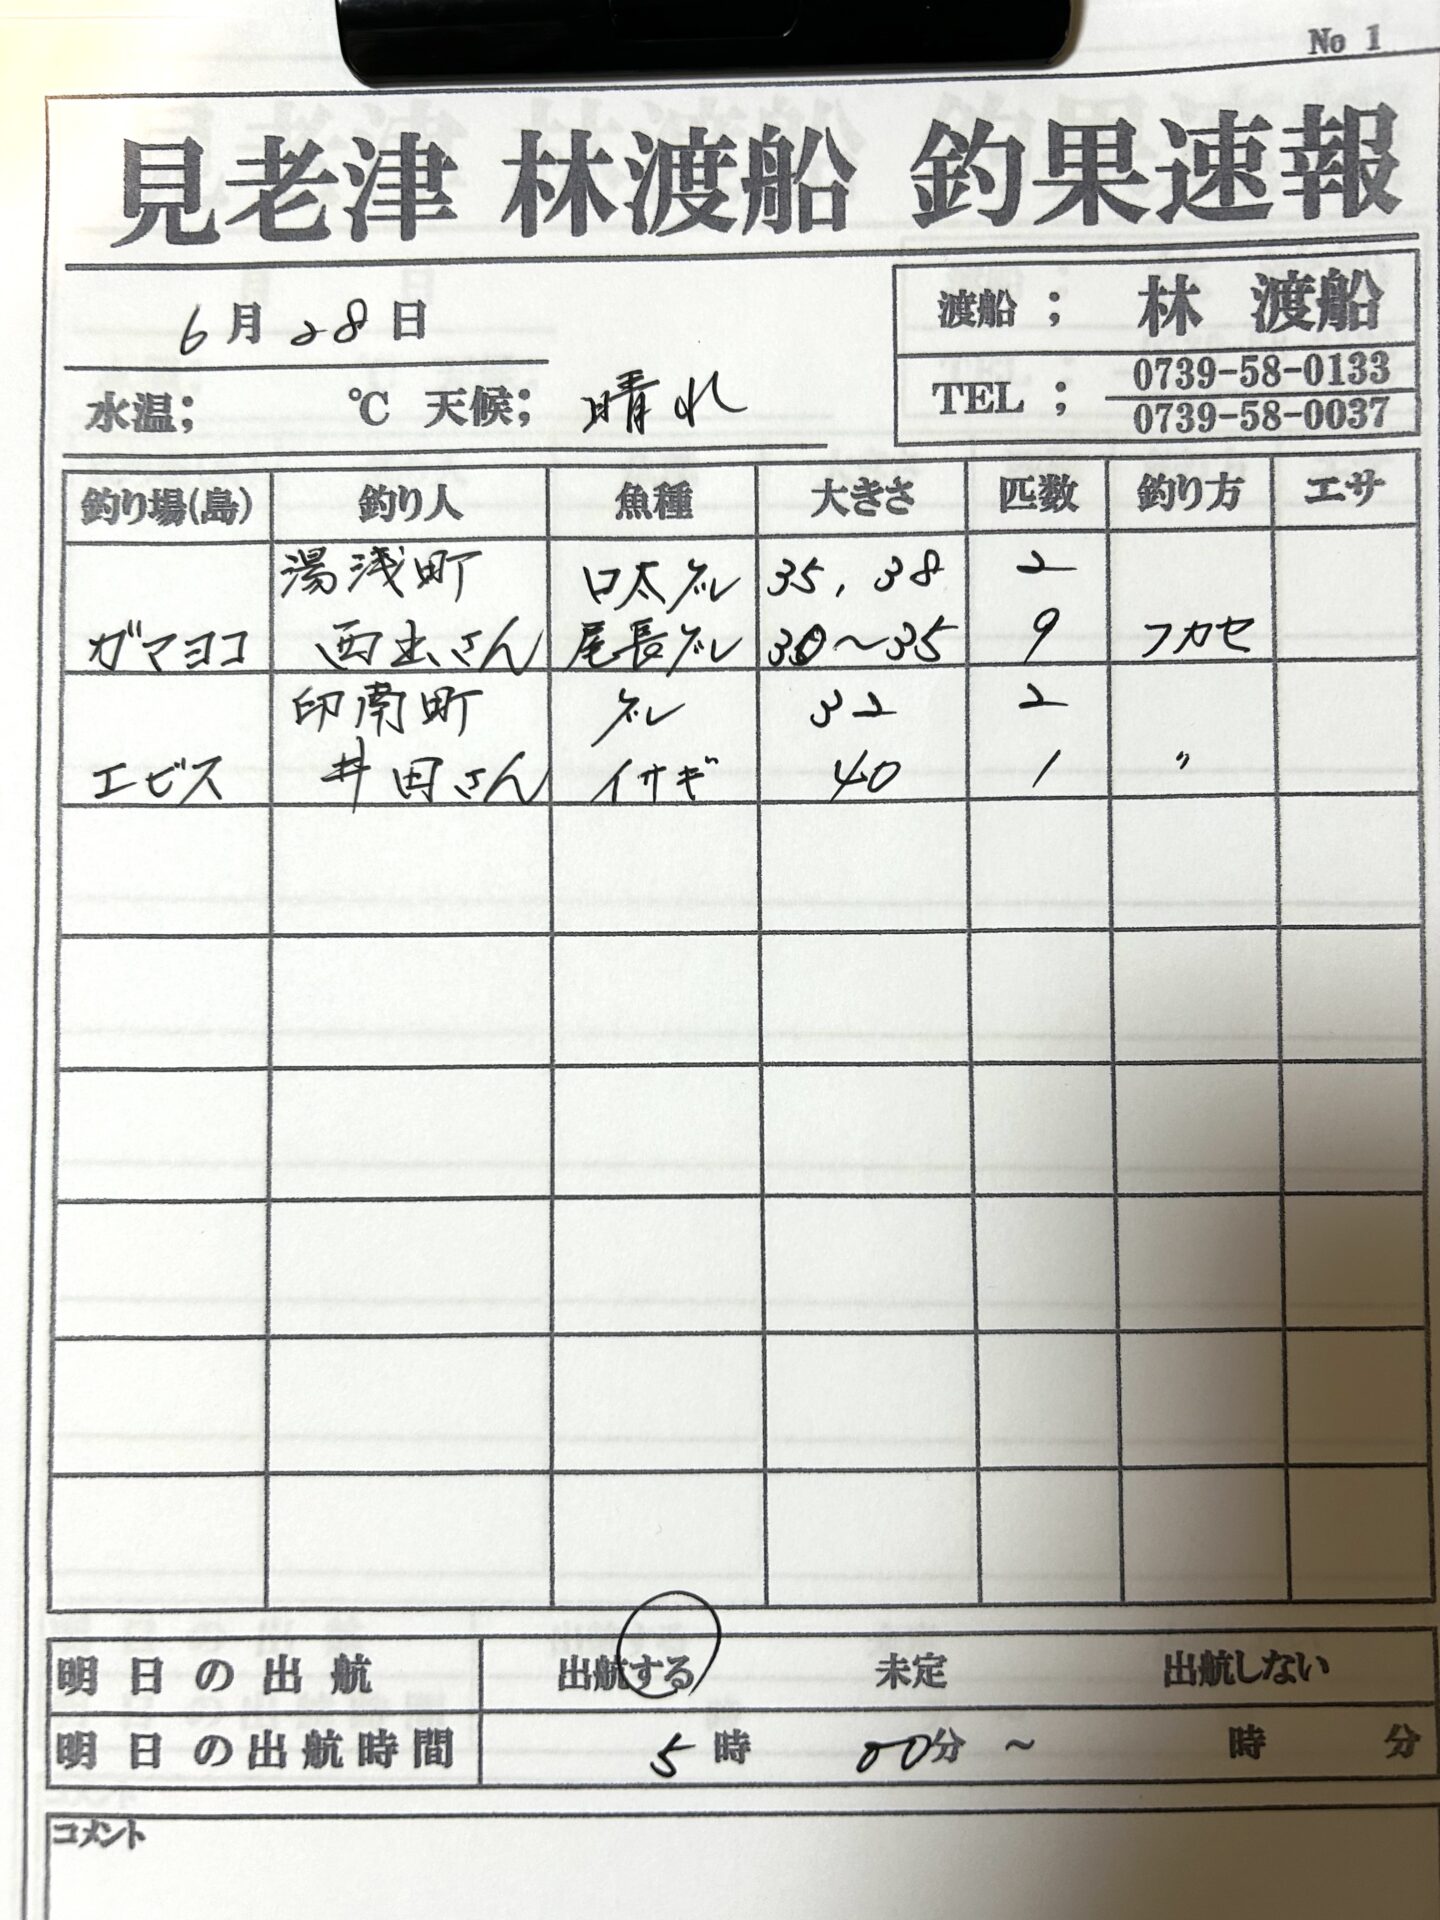 No 1
見老津 林渡船 釣果速報
6月28日
渡船 ; 林 渡船
水温; ℃ 天候; 晴れ
TEL ; 0739-58-0133
0739-58-0037
釣り場(島) 釣り人 魚種 大きさ 匹数 釣り方 エサ
湯浅町 口太グレ 35, 38 2
ガマヨコ 西出さん 尾長グレ 30〜35 9 フカセ
印南町 グレ 32 2
エビス 井田さん イサギ 40 1 〃
明日の出航 出航する 未定 出航しない
明日の出航時間 5時 00分 ~ 時 分
コメント